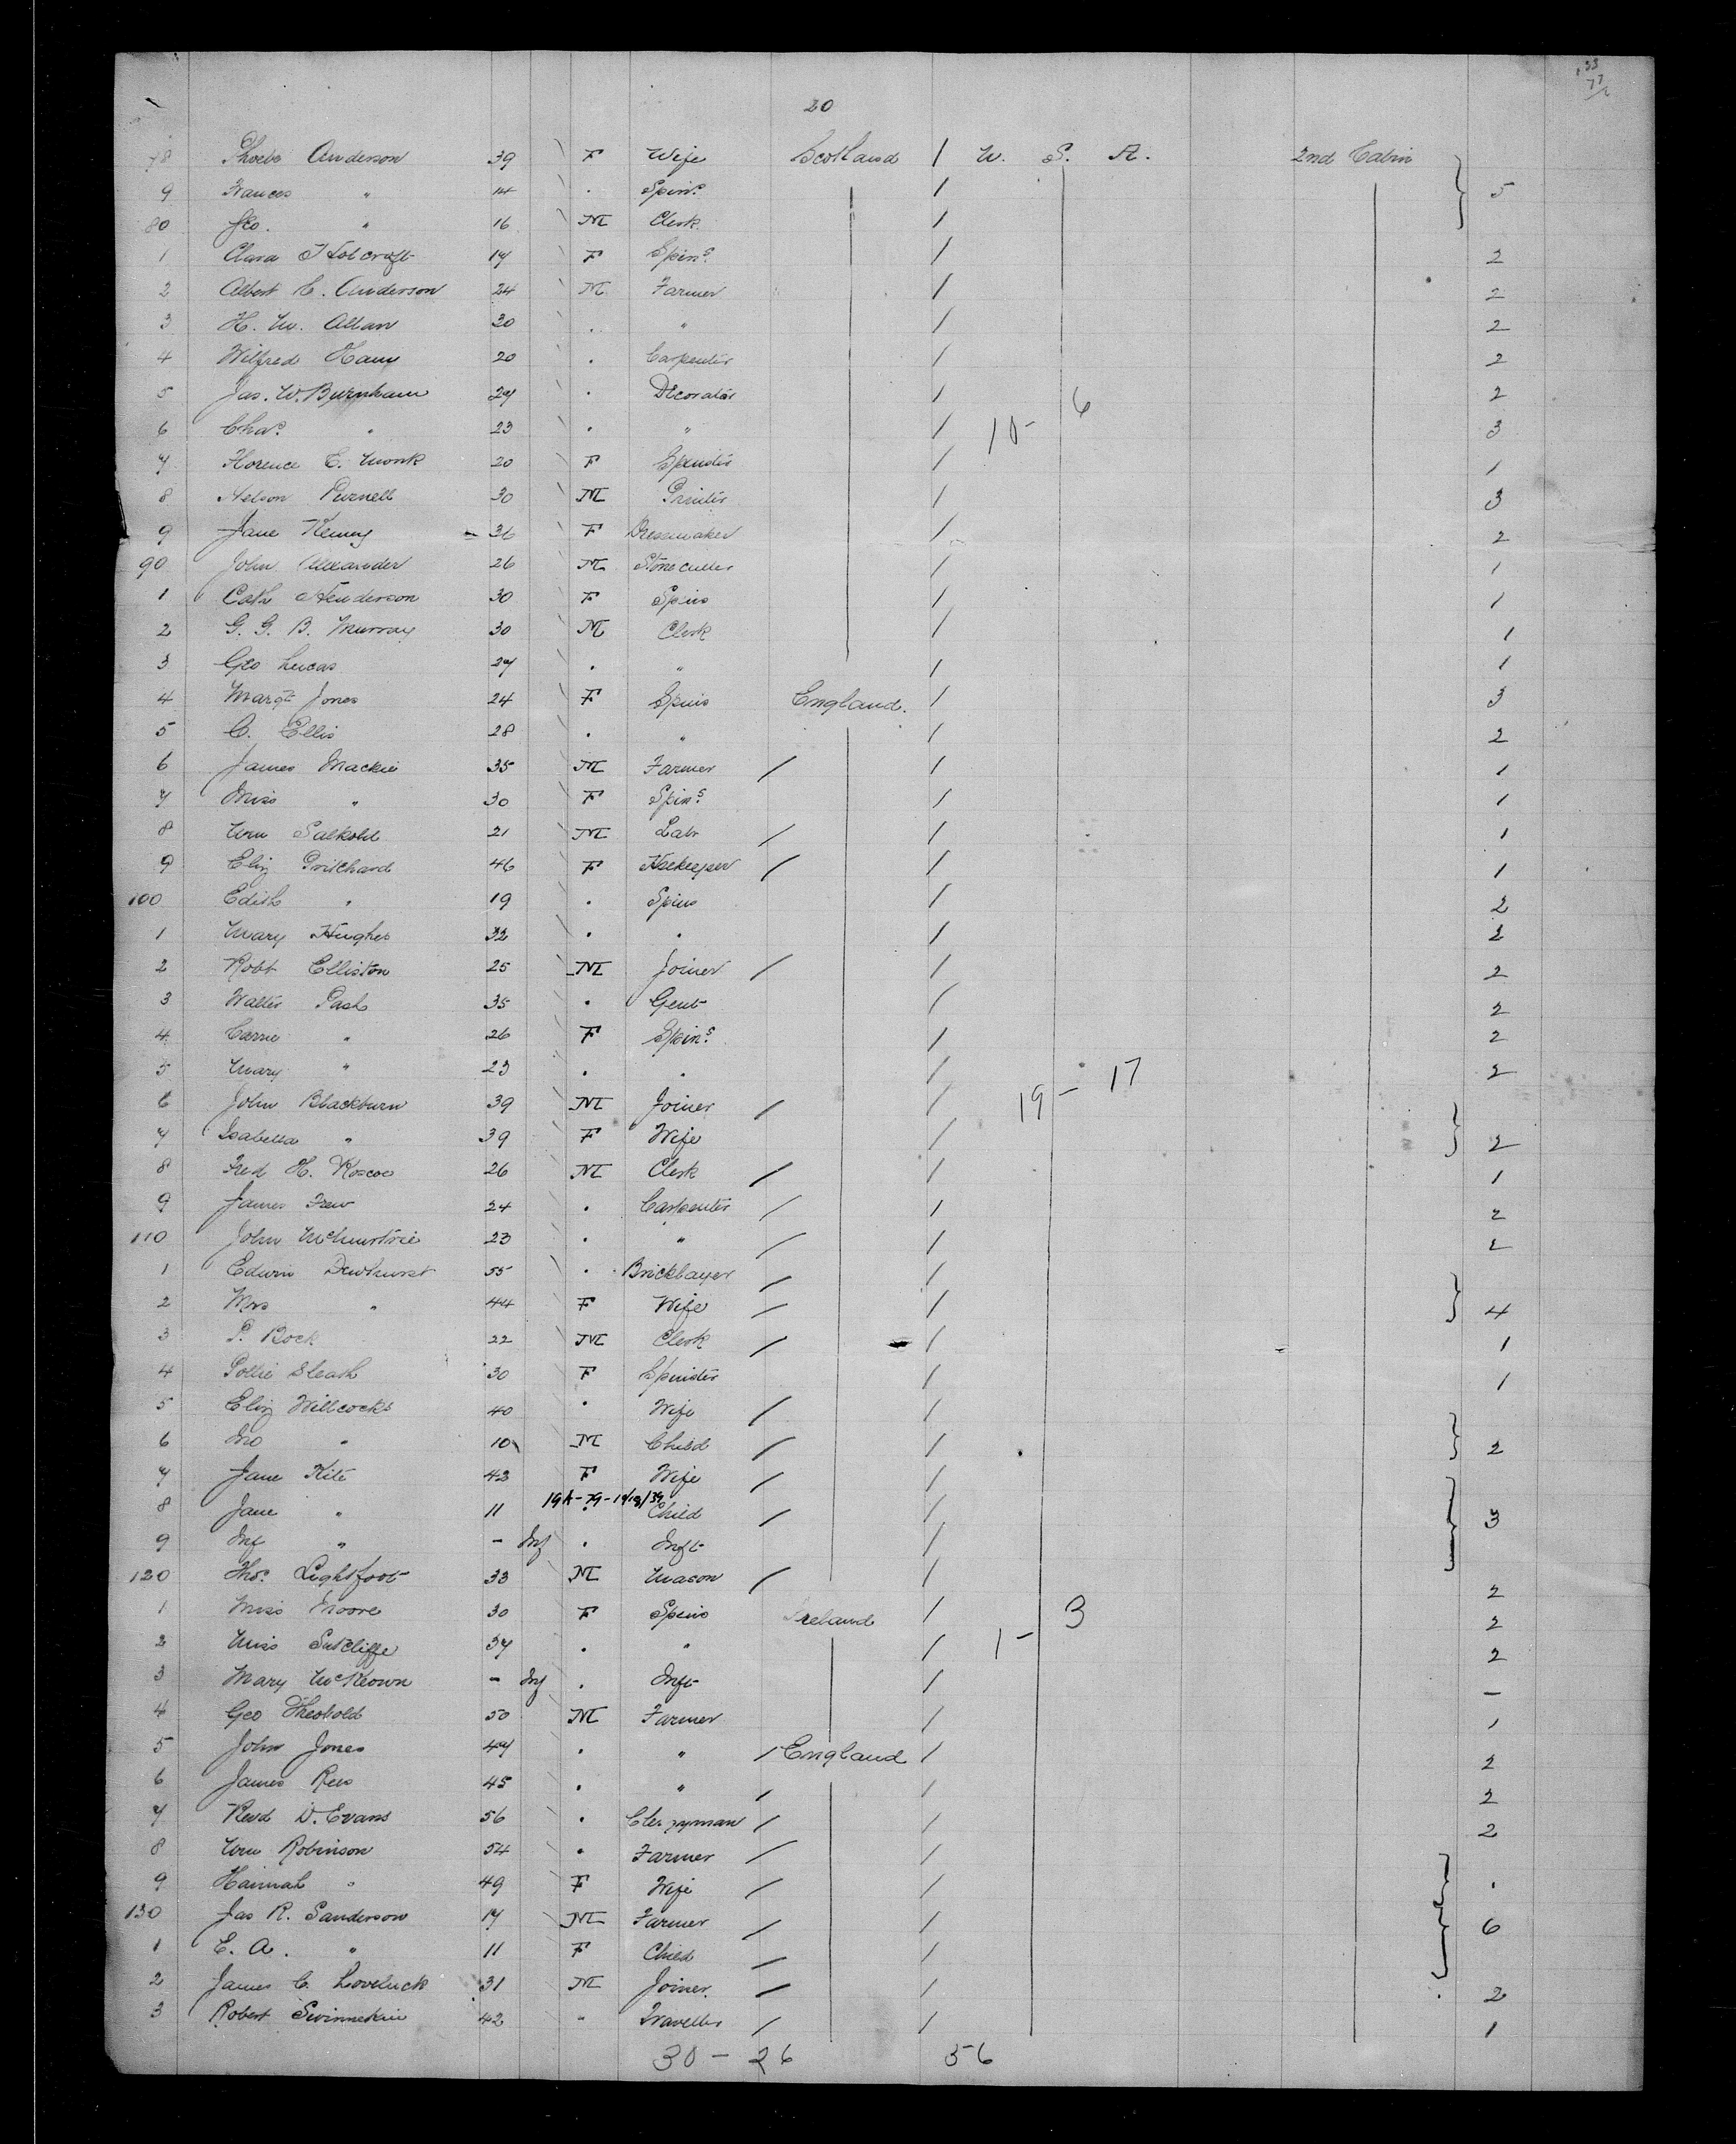 20
78 Phoebe Anderson 39 F Wife Scotland / U. S. A. 2nd Cabin
9 Frances " 14 . Spinr / 5
80 Geo. " 16 M Clerk /
1 Clara Holcroft 17 F Spinr / 2
2 Albert C. Anderson 24 M Farmer / 2
3 H. W. Allan 30 . " / 2
4 Wilfred 20 . Carpenter / 2
5 Jas. W. Burnham 27 . Decorator / 2
6 Chas. " 23 . " / 3
10 - 6
7 Florence E. Monk 20 F Spinster / 1
8 Nelson Purnell 30 M Printer / 3
9 Jane Kenny 36 F Dressmaker / 2
90 John Alexander 26 M Stone cutter / 1
1 Cath Henderson 30 F Spins / 1
2 G. G. B. Murray 30 M Clerk / 1
3 Geo Lucas 27 . " / 1
4 Margt Jones 24 F Spins England. / 3
5 C. Ellis 28 . " / 2
6 James Mackie 35 M Farmer / / 1
7 Miss " 30 F Spins / 1
8 Wm Salkold 21 M Labr / / 1
9 Eliz Pritchard 46 F Hsekeeper / / 1
100 Edith " 19 . Spins / 2
1 Mary Hughes 32 . . / 2
2 Robt Elliston 25 M Joiner / / 2
3 Walter Pash 35 . Gent / 2
4 Carrie " 26 F Spins / 2
5 Mary " 23 . . / 2
19 - 17
6 John Blackburn 39 M Joiner / /
7 Isabella " 39 F Wife / 2
8 Fred H. Roscoe 26 M Clerk / / 1
9 James Frew 24 . Carpenter / / 2
110 John McMurtrie 23 . " / / 2
1 Edwin Dewhurst 55 . Bricklayer / /
2 Mrs " 44 F Wife / / 4
3 P. Bock 22 M Clerk / / 1
4 Pollie Sleath 30 F Spinster / 1
5 Eliz Willcocks 40 . Wife / /
6 Jno " 10 M Child / / 2
7 Jane Kite 42 F Wife / /
8 Jane " 11 . Child / / 3
9 Inf " - Inf . Inft /
120 Thos. Lightfoot 33 M Mason / / 2
1 Miss Moore 30 F Spins Ireland / 2
1 - 3
2 Miss Sutcliffe 37 . " / 2
3 Mary McKeown - Inf . Inft / -
4 Geo Theobold 50 M Farmer / 1
5 John Jones 47 . " / England / 2
6 James Rees 45 . " / / 2
7 Revd D. Evans 56 . Clergyman / / 2
8 Wm Robinson 54 . Farmer / /
9 Hannah " 49 F Wife / / .
130 Jas R. Sanderson 17 M Farmer / / 6
1 E. A. " 11 F Child / /
2 James C. Loveluck 31 M Joiner / / 2
3 Robert 42 " Traveller / / 1
30 - 26 56